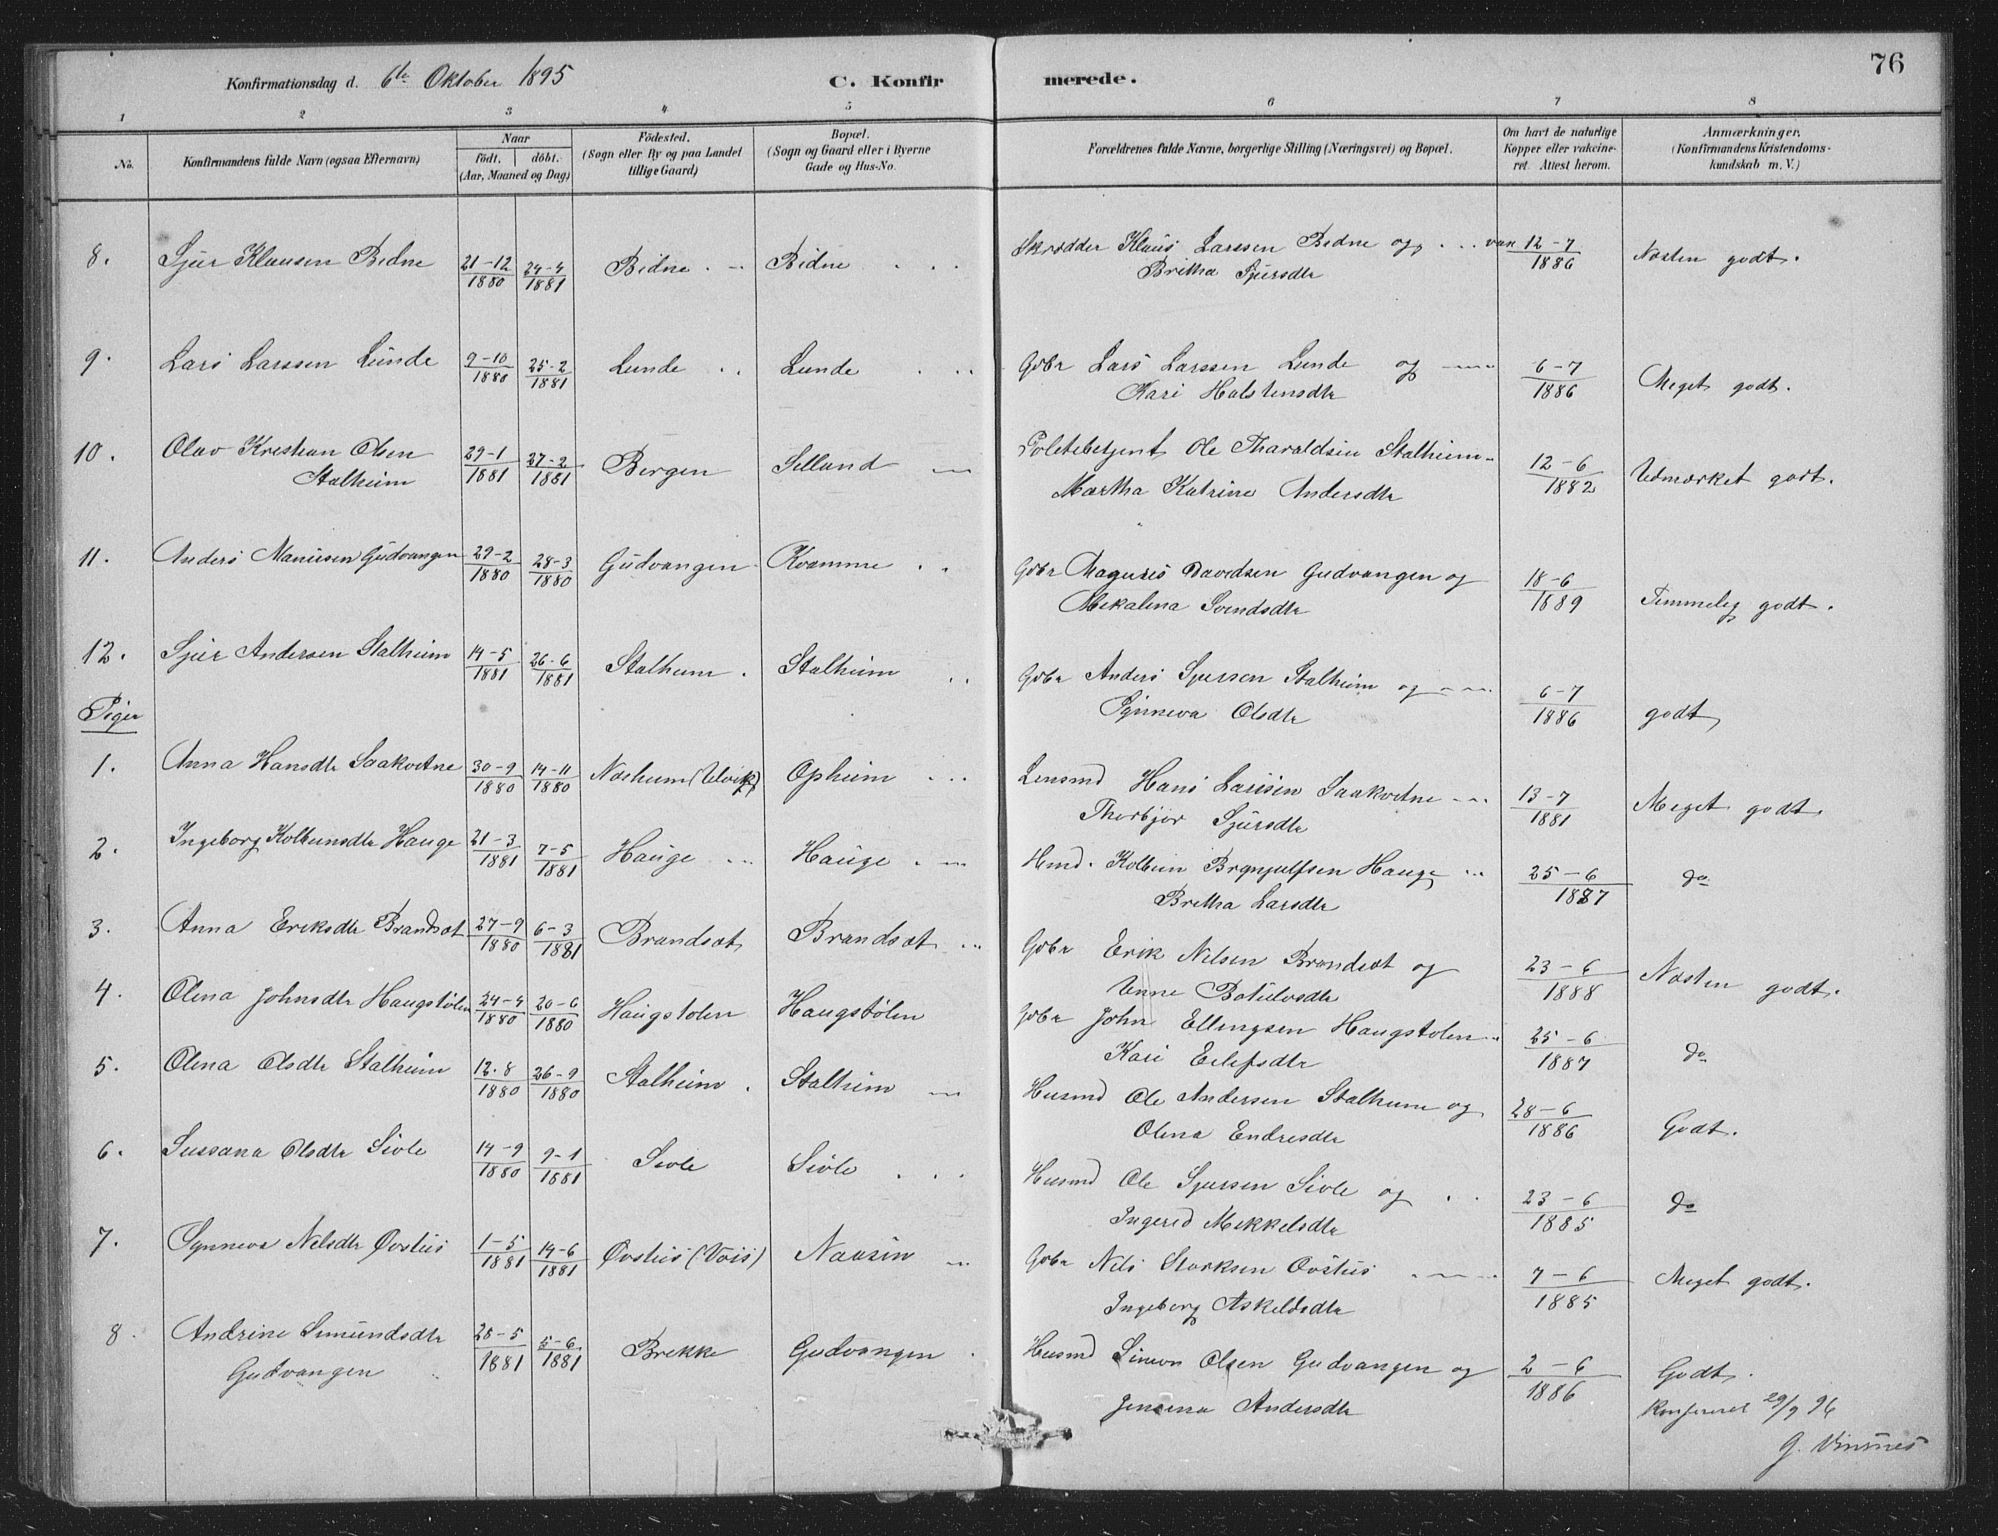 76
Konfirmationsdag d. 6te Oktober 1895 C. Konfirmerede.
1 2 3 4 5 6 7 8
No. Konfirmandens fulde Navn (ogsaa Efternavn) Naar födt. döbt. (Aar, Maaned og Dag) Födested. (Sogn eller By og paa Landet tillige Gaard) Bopæl. (Sogn og Gaard eller i Byerne Gade og Hus-No. Forældrenes fulde Navne, borgerlige Stilling (Næringsvei) og Bopæl. Om havt de naturlige Kopper eller vakcineret. Attest herom. Anmærkninger. (Konfirmandens Kristendomskundskab m. V.)
8. Sjur Klausen Bidne 21-12 1880 24-4 1881 Bidne Bidne Skrædder Klaus Larssen Bidne og vac 12-7 1886 Næsten godt.
Britha Sjursdtr
9. Lars Larssen Lunde 9-10 1880 25-2 1881 Lunde Lunde Gdbr Lars Larssen Lunde og 6-7 1886 Meget godt.
Kari Halstensdtr
10. Olav Kristian Olsen 29-1 1881 27-2 1881 Bergen Politebetjent Ole Tharaldsen Stalheim 12-6 1882 Udmærket godt.
Stalheim Martha Katrine Andersdtr
11. Anders Gudvangen 29-2 1880 28-3 1880 Gudvangen Kvamme Gdbr Davidsen Gudvangen og 18-6 1889 Temmelig godt.
Mikalina Svendsdtr
12. Sjur Andersen Stalheim 14-5 1881 26-6 1881 Stalheim Stalheim Gdbr Anders Sjursson Stalheim og 6-7 1886 godt
Synneva Olsdtr
Piger
1. Anna Hansdtr Saakvitne 30-9 1880 14-11 1880 (Ulvik) Opheim Lensmd Hans Larssen Saakvitne 13-7 1881 Meget godt.
Thorbjør Sjursdtr
2. Ingeborg Kolbeinsdtr Hauge 21-3 1881 7-5 1881 Hauge Hauge Hmd. Kolbein Brynjulfsen Hauge 25-6 1887 do
Britha Larsdtr
3. Anna Eriksdtr Brandsæt 27-9 1880 6-3 1881 Brandsæt Brandsæt Gdbr Erik Nilsen Brandsæt og 23-6 1888 Næsten godt.
Unne Botulvsdtr
4. Olina Johnsdtr Haugstølen 24-4 1880 20-6 1880 Haugstølen Haugstølen Gdbr John Ellingsen Haugstølen 25-6 1887 do
Kari Eilifsdtr
5. Olina Olsdtr Stalheim 12-8 1880 26-9 1880 Stalheim Stalheim Husmd Ole Andersen Stalheim og 28-6 1886 Godt.
Olina Endresdtr
6. Sussana Olsdtr Sivle 14-9 1880 9-1 1881 Sivle Sivle Husmd Ole Sjurssen Sivle og 23-6 1885 do
Ingerid Mikkelsdtr
7. Synneva Nilsdtr Øvsthus 1-5 1881 14-6 1881 Øvsthus (Voss) Gdbr Nils Storksen Øvsthus 7-6 1885 Meget godt.
Ingeborg Askeldsdtr
8. Andrine Simundsdtr 28-5 1881 5-6 1881 Brekke Gudvangen Husmd Simon Olsen Gudvangen og 2-6 1886 Godt.
Gudvangen Andersdtr
Konfereret 29/9 96
G. Vinsnes